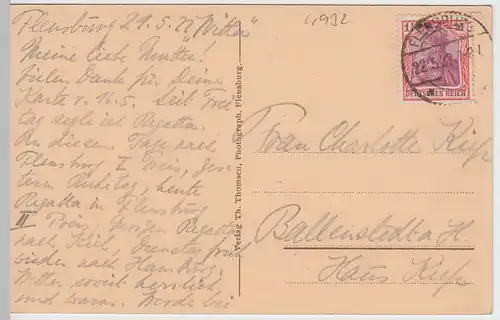 Flensburg 21.5.22 "Witta"
Meine liebe Mutter!
Vielen Dank für Deine
Karte v. 16.5. Seit Frei
tag segle ich Regatta.
An diesem Tage nach
Flensburg I Preis, ges-
tern Ruhetag, heute
Regatta in Flensburg
III Preis, morgen Regatta
nach Kiel, Dienstag früh
wieder nach Hamburg.
Wetter soweit herrlich
und warm. Werde bei
4932
1 DEUTSCHES REICH 1
FLENSBURG
22.5.22
Verlag Th. Thomsen, Photograph, Flensburg.
Frau Charlotte
Ballenstedt a H
Haus